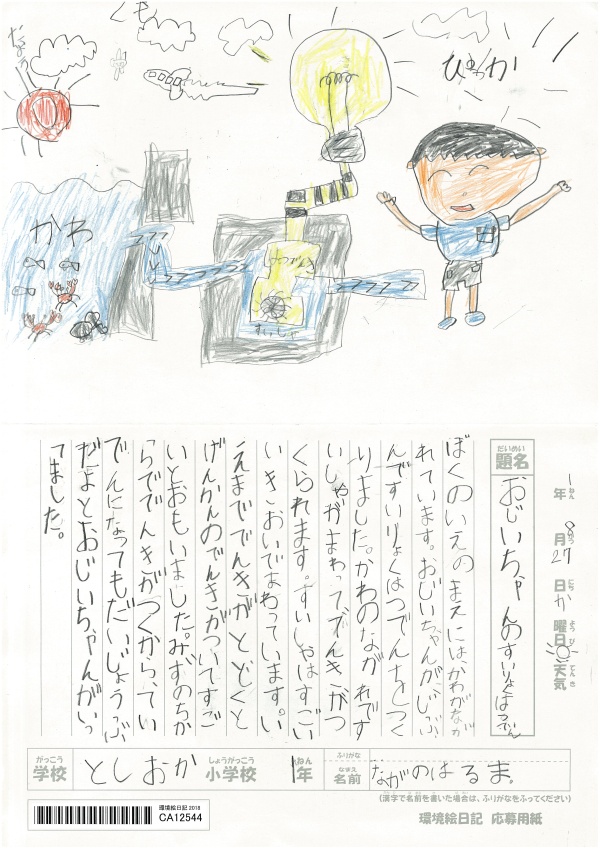 くも
なつ
ひろか
かわ
はつでんき
すいしゃ
1年 8月27日 か曜日 天気
ねん がつ にち ようび てんき
だいめい
題名
おじいちゃんのすいりょくはつでん
ぼくのいえのまえにはかわがなが
れています。おじいちゃんがじぶ
んですいりょくはつでんをつく
りました。かわのながれです
いしゃがまわってでんきがつ
くられます。すいしゃはすごい
いきおいでまわっています。い
えまででんきがとどくと
げんかんのでんきがついてすご
いとおもいました。みずのちか
らででんきがつくからってい
でんになってもだいじょうぶ
だよとおじいちゃんがいっ
てました。
がっこう
学校
としおか
しょうがっこう
小学校
1年
ねん
ふりがな
なまえ
名前
ながのはるま
(漢字で名前を書いた場合は、ふりがなをふってください)
環境絵日記 2018
CA12544
環境絵日記 応募用紙